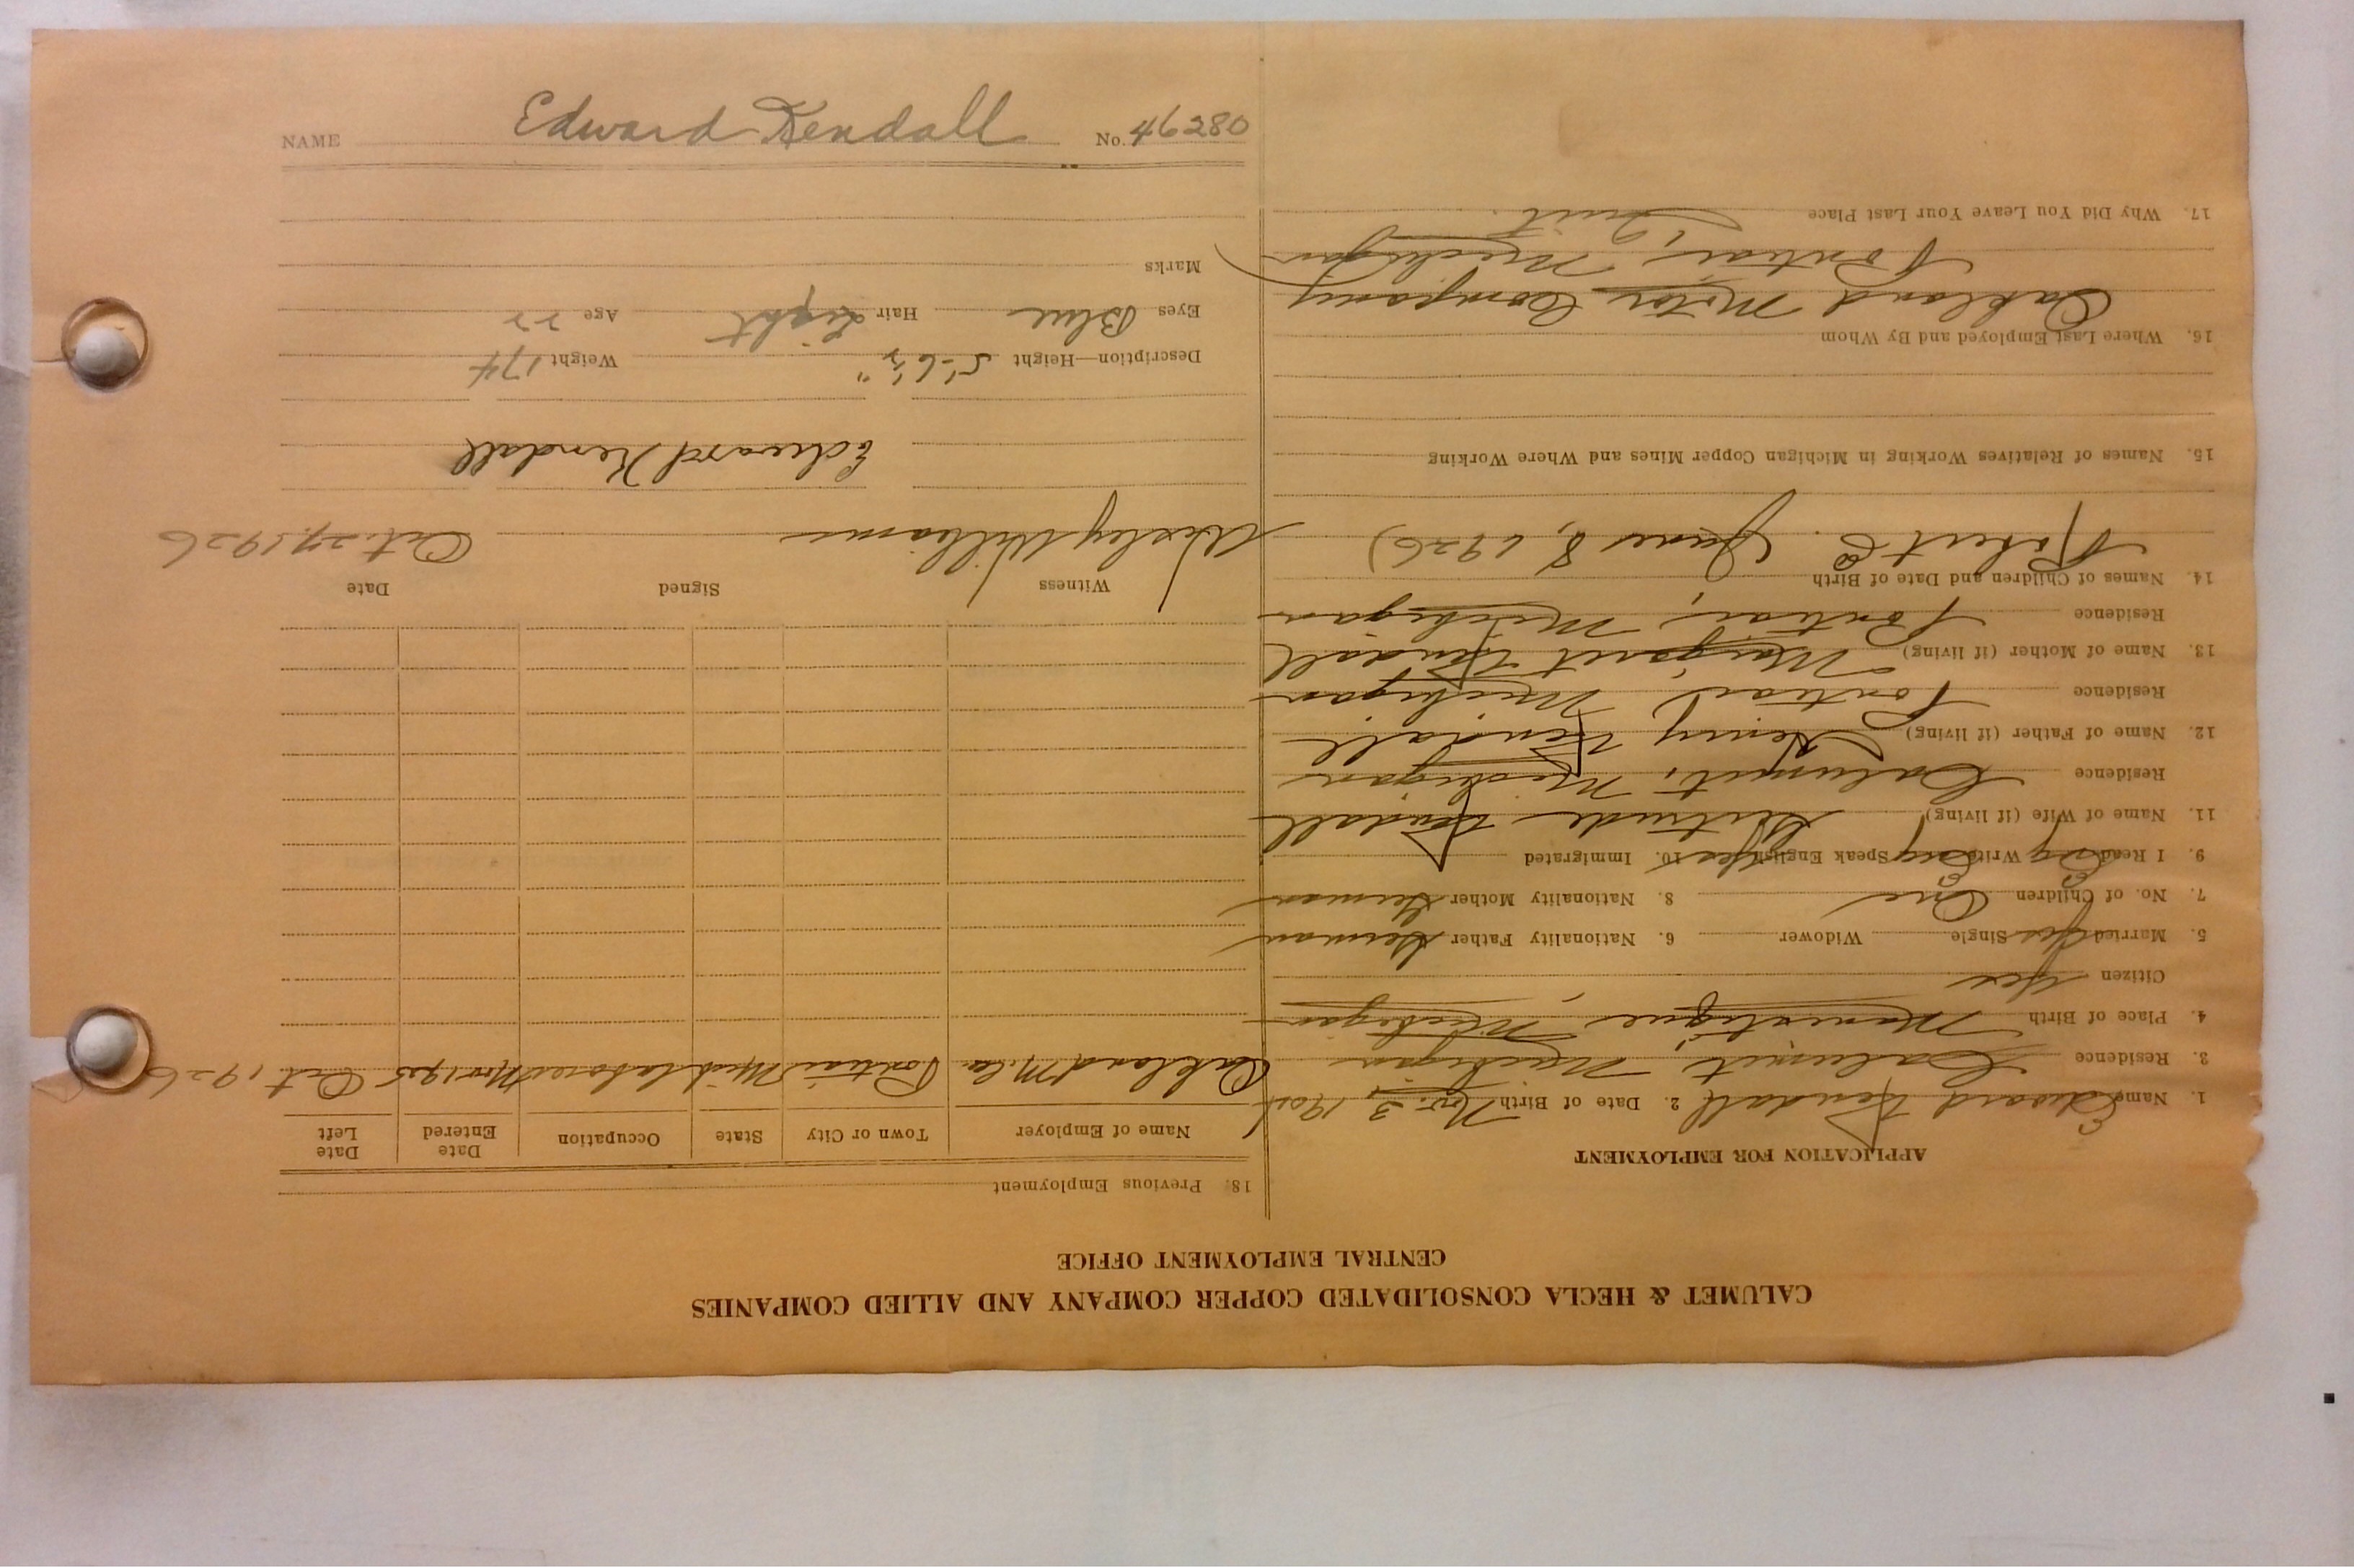 NAME Edward Kendall No. 46280
CALUMET & HECLA CONSOLIDATED COPPER COMPANY AND ALLIED COMPANIES
CENTRAL EMPLOYMENT OFFICE
APPLICATION FOR EMPLOYMENT
1. Name Edward Kendall 2. Date of Birth Nov. 3, 1904
3. Residence Calumet, Michigan
4. Place of Birth Manistique, Michigan
Citizen Yes
5. Married Yes Single Widower 6. Nationality Father German
7. No. of Children One 8. Nationality Mother German
9. I Read Eng Write Eng Speak English Yes 10. Immigrated
11. Name of Wife (if living) Gertrude Kendall
Residence Calumet, Michigan
12. Name of Father (if living) Henry Kendall
Residence Pontiac, Michigan
13. Name of Mother (if living) Margaret Kendall
Residence Pontiac, Michigan
14. Names of Children and Date of Birth
Robert E. June 8, 1926)
15. Names of Relatives Working in Michigan Copper Mines and Where Working
16. Where Last Employed and By Whom
Oakland Motor Company
Pontiac, Michigan
17. Why Did You Leave Your Last Place Quit.
18. Previous Employment
Name of Employer Town or City State Occupation Date Entered Date Left
Oakland M. Co. Pontiac Mich Laborer Nov. 1925 Oct. 1926
Witness Signed Date
Wesley Williams Oct. 27, 1926
Edward Kendall
Description—Height 5'-6½" Weight 174
Eyes Blue Hair Light Age 22
Marks